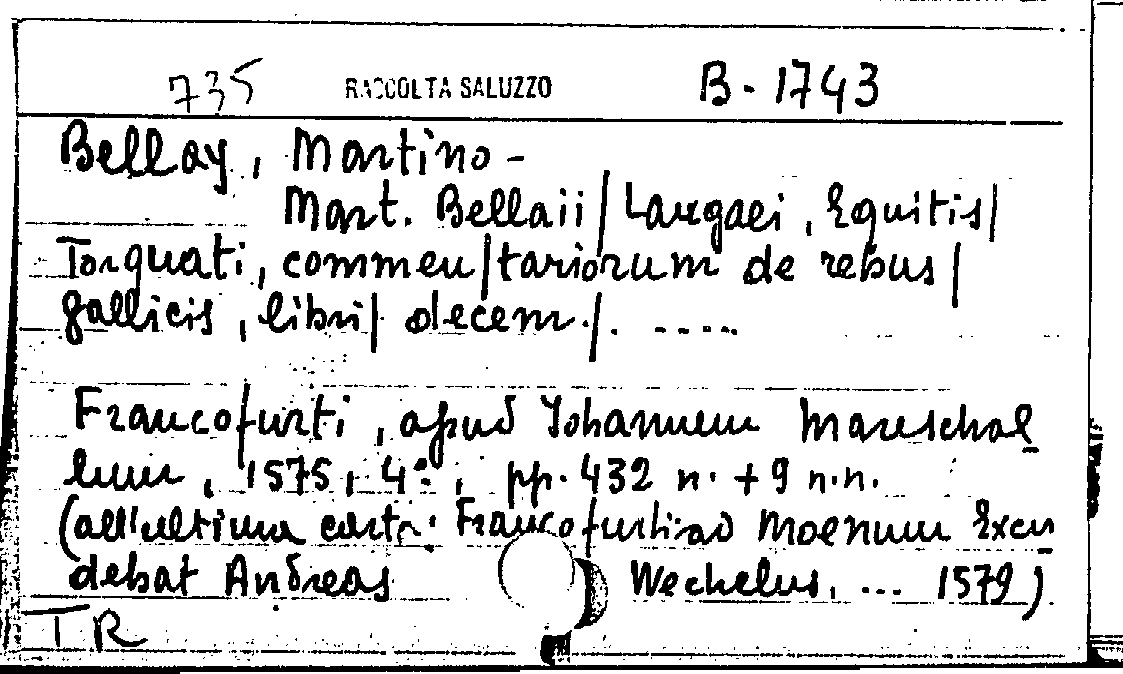 735 RACCOLTA SALUZZO B. 1743
Bellay, Martino -
Mart. Bellaii / Langaei, Equitis /
Torquati, commen/tariorum de rebus /
gallicis, libri / decem /. .....
Francofurti, apud Iohannem Mareschal
lum, 1575, 4°, pp. 432 n. + 9 n.n.
(all'ultima carta: Francofurti ad Moenum Excu
debat Andreas Wechelus, ... 1579)
TR